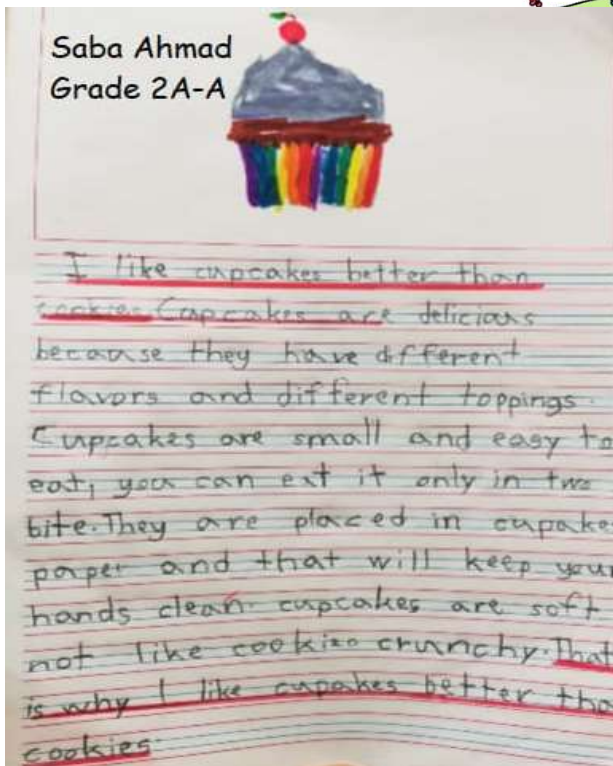 Saba Ahmad
Grade 2A-A
I like cupcakes better than
cookies Cupcakes are delicious
because they have different
flavors and different toppings.
Cupcakes are small and easy to
eat, you can eat it only in two
bite. They are placed in cupake
paper and that will keep your
hands clean. cupcakes are soft
not like cookies crunchy. That
is why I like cupakes better tha
cookies.